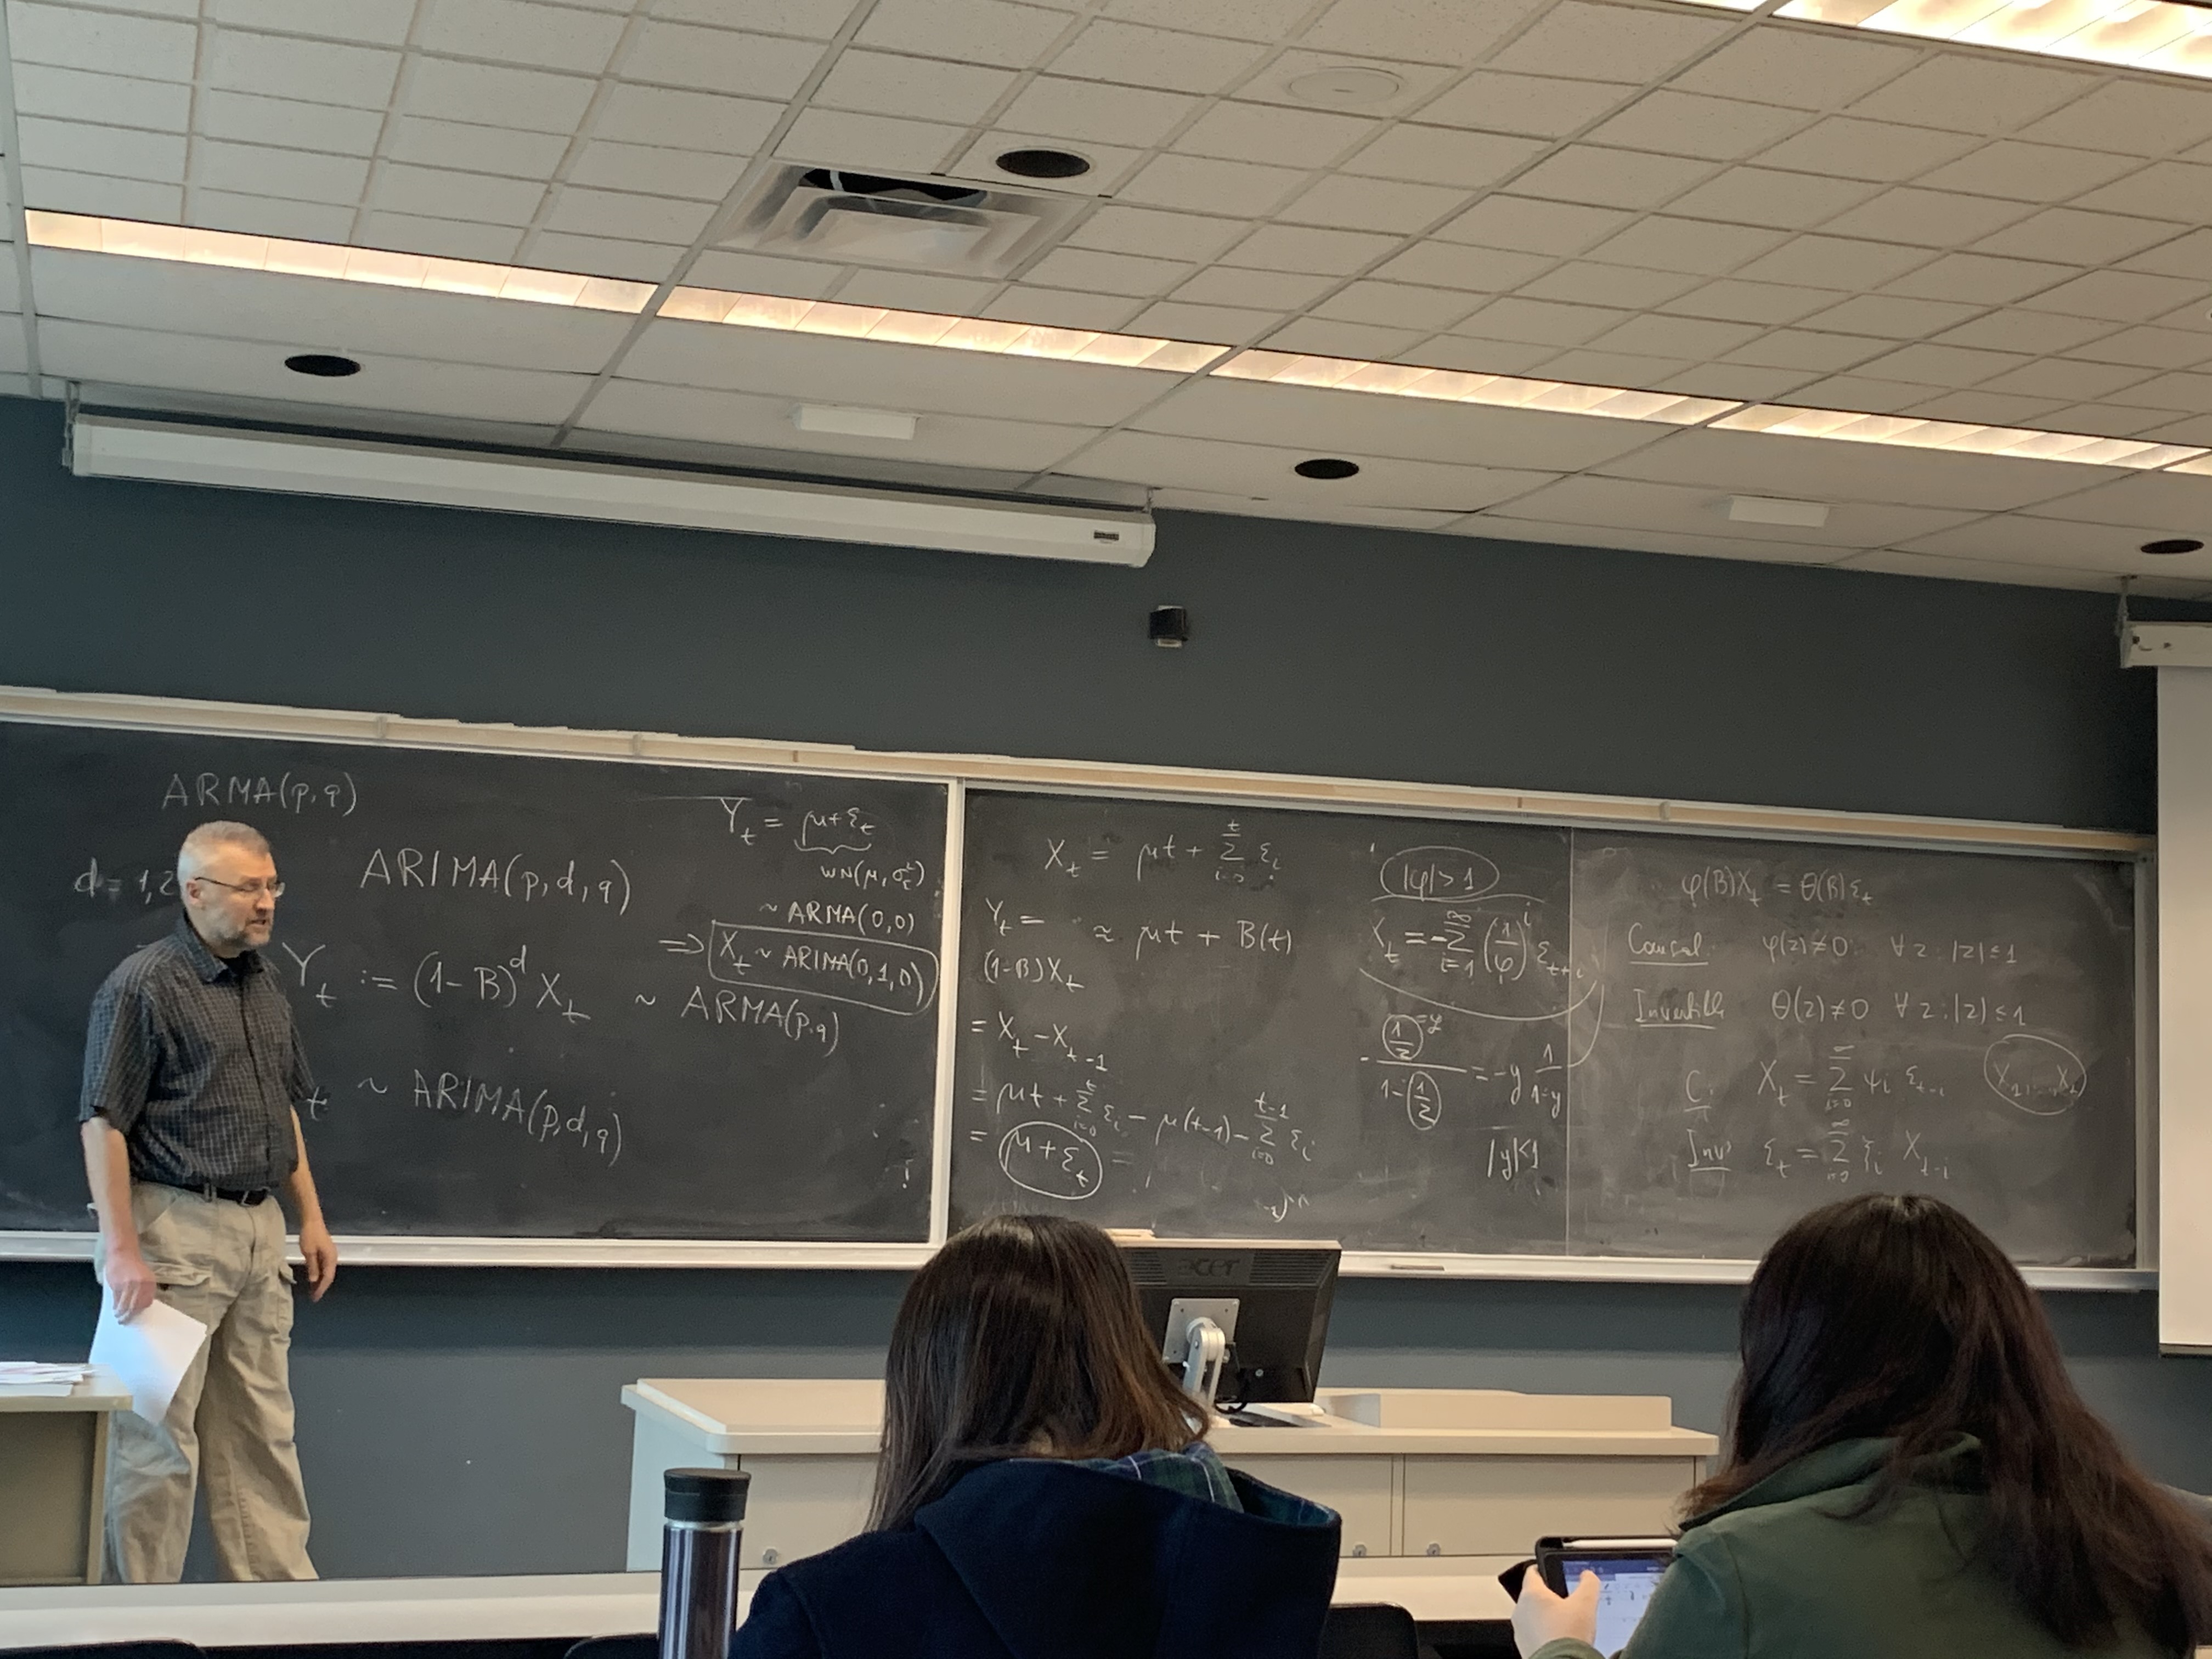 ARMA(p,q)
d = 1,2
ARIMA(p,d,q)
Y_t := (1-B)^d X_t ~ ARMA(p,q)
t ~ ARIMA(p,d,q)
Y_t = μ+ε_t
WN(μ,σ_ε^2)
~ ARMA(0,0)
=> X_t ~ ARIMA(0,1,0)
X_t = μt + Σ_{i=0}^{t} ε_i
≈ μt + B(t)
Y_t =
(1-B)X_t
= X_t - X_{t-1}
= μt + Σ_{i=0}^{t} ε_i - μ(t-1) - Σ_{i=0}^{t-1} ε_i
= μ+ε_t =
|φ|>1
X_t = -Σ_{i=1}^{∞} (1/φ)^i ε_{t+i}
- (1/z)/(1-(1/z)) = -y 1/(1-y)
=y
|y|<1
φ(B)X_t = θ(B)ε_t
Causal: φ(z)≠0 ∀ z: |z|≤1
Invertible θ(z)≠0 ∀ z: |z|≤1
C: X_t = Σ_{i=0}^{∞} ψ_i ε_{t-i}
Inv ε_t = Σ_{i=0}^{∞} ξ_i X_{t-i}
acer